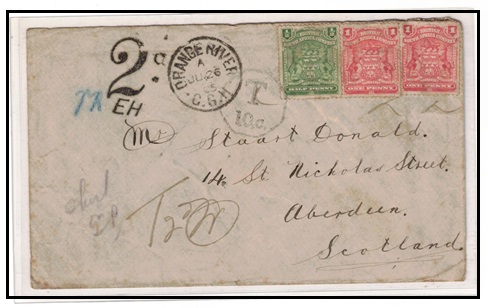 2d
EH
ORANGE RIVER
A
JU 26
C.G.H.
T
10c.
½ ½
HALF PENNY
1 1
ONE PENNY
1 1
ONE PENNY
Mr Stuart Donald.
14. St Nicholas Street.
Aberdeen.
Scotland.